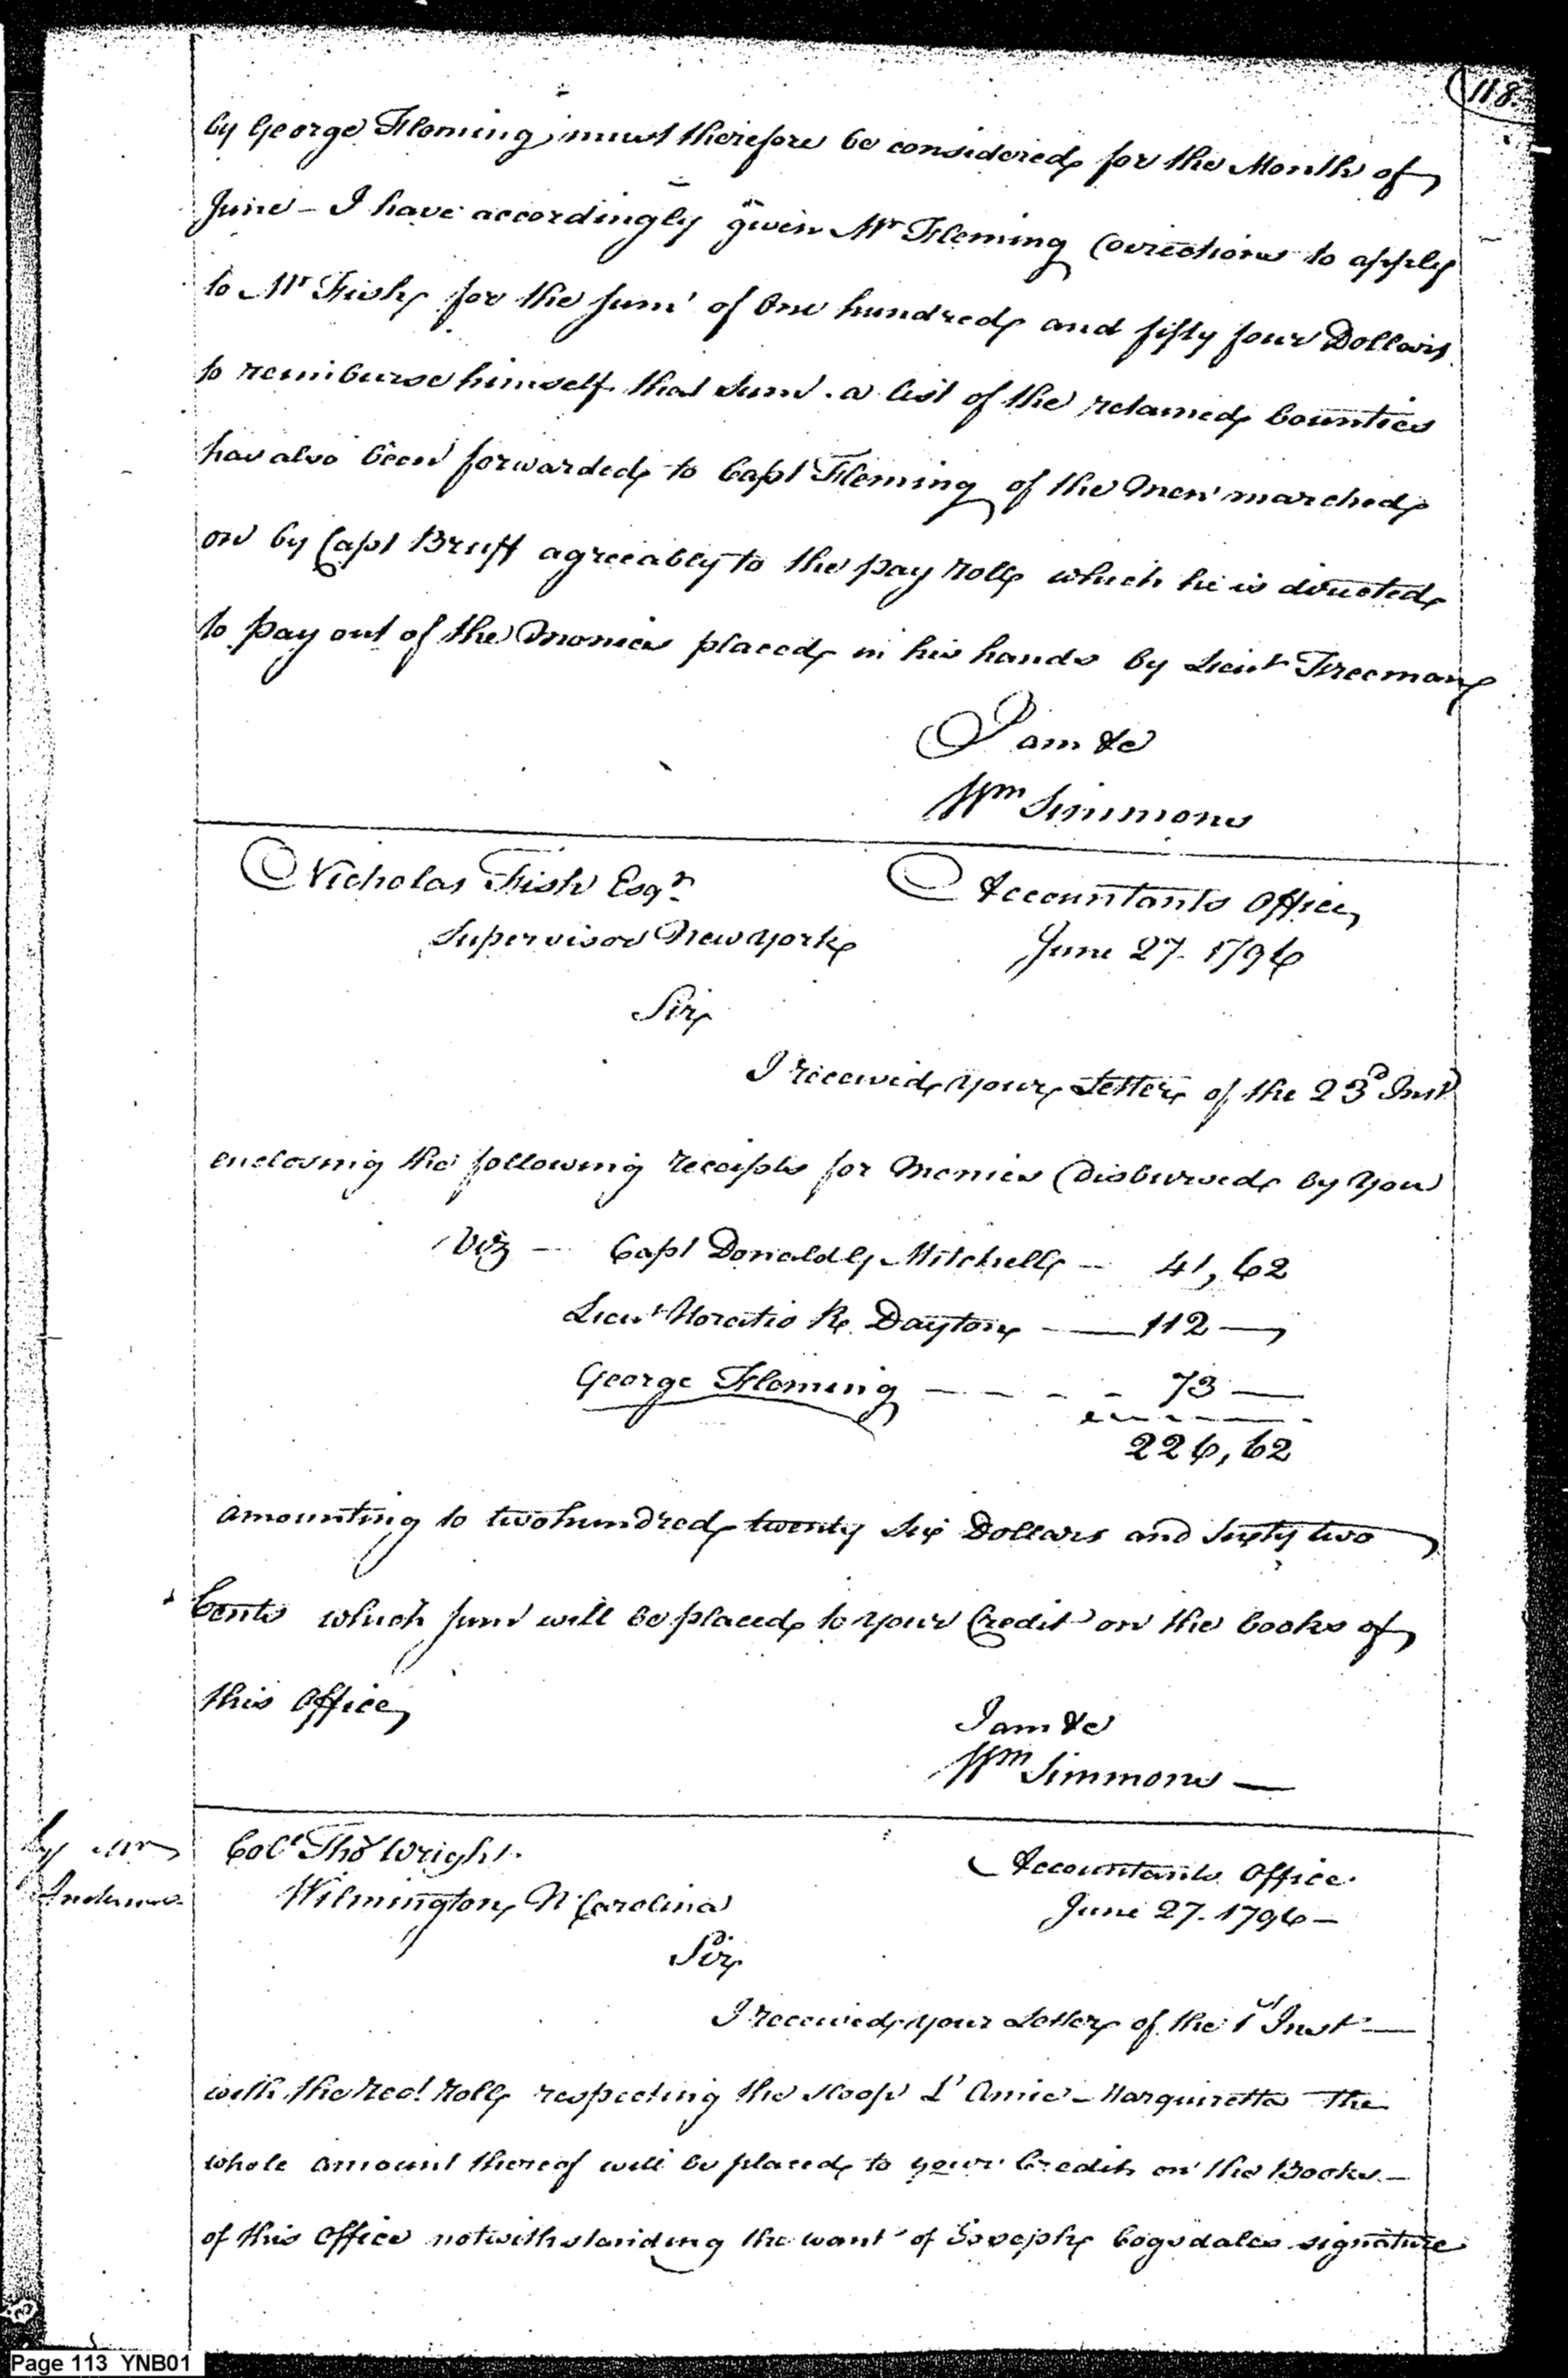 118.
by George Fleming must therefore be considered for the Month of
June - I have accordingly given Mr Fleming Directions to apply
to Mr Fish for the sum of One hundred and fifty four Dollars
to reimburse himself that sum. a list of the retained bounties
has also been forwarded to Capt Fleming of the Men marched
on by Capt Bruff agreeably to the pay roll which he is directed
to pay out of the Monies placed in his hands by Lieut Freeman
I am &c
Wm Simmons
Nicholas Fish Esqr.
Accountants Office
Supervisor New York
June 27. 1796
Sir
I received your Letter of the 23d Inst
enclosing the following receipts for Monies Disbursed by You
Viz - Capt Donald G Mitchell - 41,62
Lieut Horatio R. Dayton - 112 -
George Fleming - - - - 73 -
226,62
amounting to two hundred twenty Six Dollars and Sixty two
Cents which sum will be placed to your Credit on the books of
this Office
I am &c
Wm Simmons -
by Mr
Colo Thos Wright.
Accountants Office.
Wilmington N Carolina
June 27. 1796 -
Sir
I received your Letter of the 1st Inst -
with the Rect. Roll respecting the sloop L' Amie - Marguiretta The
whole amount thereof will be placed to your Credit on the Books -
of this Office notwithstanding the want of Joseph Cogsdales signature
Page 113 YNB01